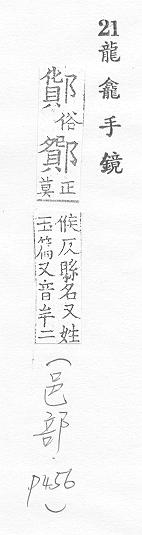 21 龍龕手鏡
俗
正莫
候反縣名又姓
玉篇又音牟二
(邑部.P456)